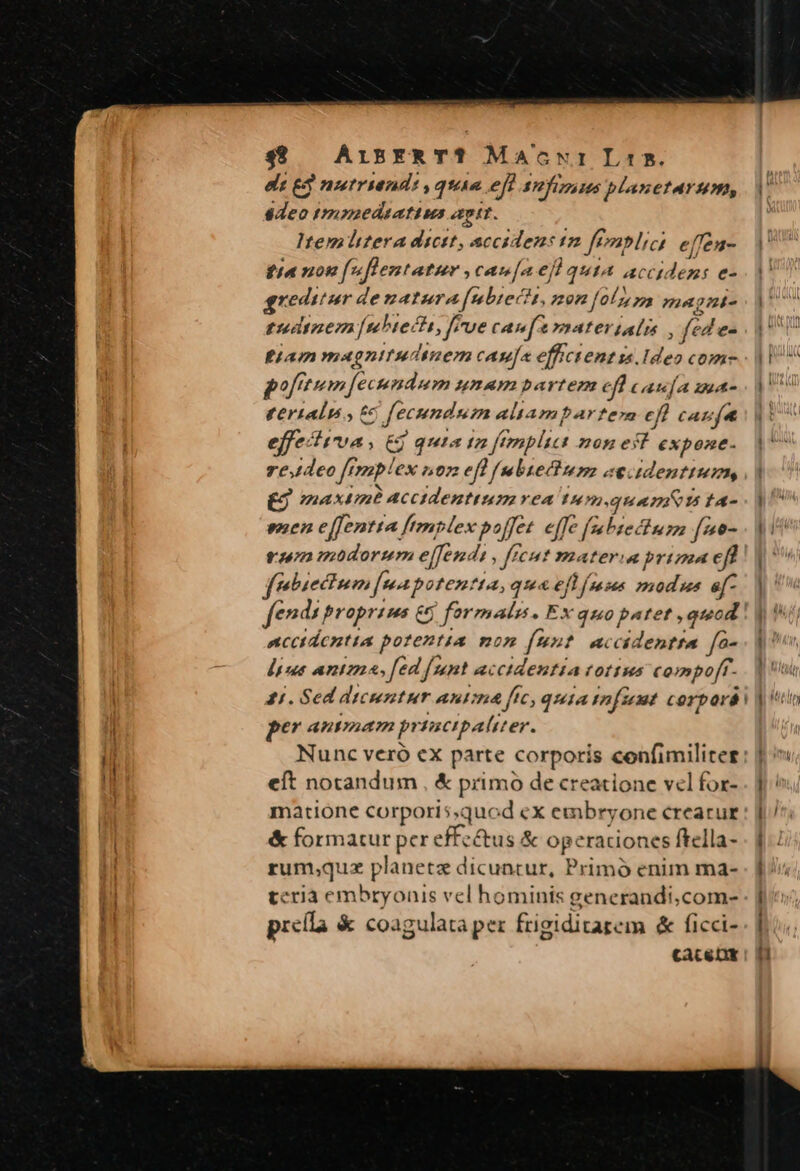 58 ALBERTI MAGNI LIB.
di & nutriendi, quia eſt infimus planetarum,
ideo immediatius agit.
Item litera dicit, accidens in ſimplici eſſen-
tia non ſuſtentatur, cauſa eſt quia accidens e-
greditur de natura ſubiecti, non ſolum magni-
tudinem ſubiecti, ſive cauſa materialis, ſed e-
tiam magnitudinem cauſa efficientis. Ideo com-
poſitum ſecundum unam partem eſt cauſa ma-
terialis, & ſecundum aliam partem eſt cauſa
effectiva, & quia in ſimplici non eſt expone-
re, ideo ſimplex non eſt ſubiectum accidentium,
& maximè accidentium rea tum, quamvis ta-
men eſſentia ſimplex poſſet eſſe ſubiectum ſuo-
rum modorum eſſendi, ſicut materia prima eſt
ſubiectum ſua potentia, qua eſt ſuus modus eſ-
ſendi proprius & formalis. Ex quo patet, quod
accidentia potentia non ſunt accidentia ſo-
lius anima, ſed ſunt accidentia totius compoſi-
ti. Sed dicuntur anima ſic, quia inſunt corporà
per animam principaliter.
Nunc verò ex parte corporis conſimiliter
eſt notandum, & primò de creatione vel for-
matione corporis, quod ex embryone creatur
& formatur per effectus & operationes ſtella-
rum, quæ planetæ dicuntur, Primò enim ma-
teria embryonis vel hominis generandi, com-
preſſa & coagulata per frigiditatem & ſicci-
tatem